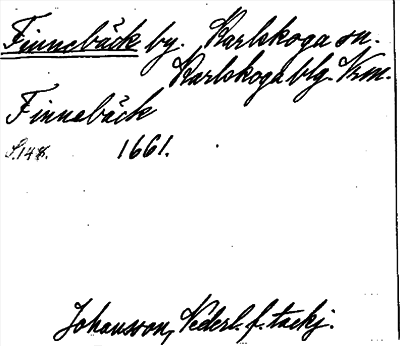 Finnebäck by. Karlskoga sn.
Karlskoga blg. Vrm.
Finnebäck
S. 148. 1661.
Johansson, Nederl. f. tackj.